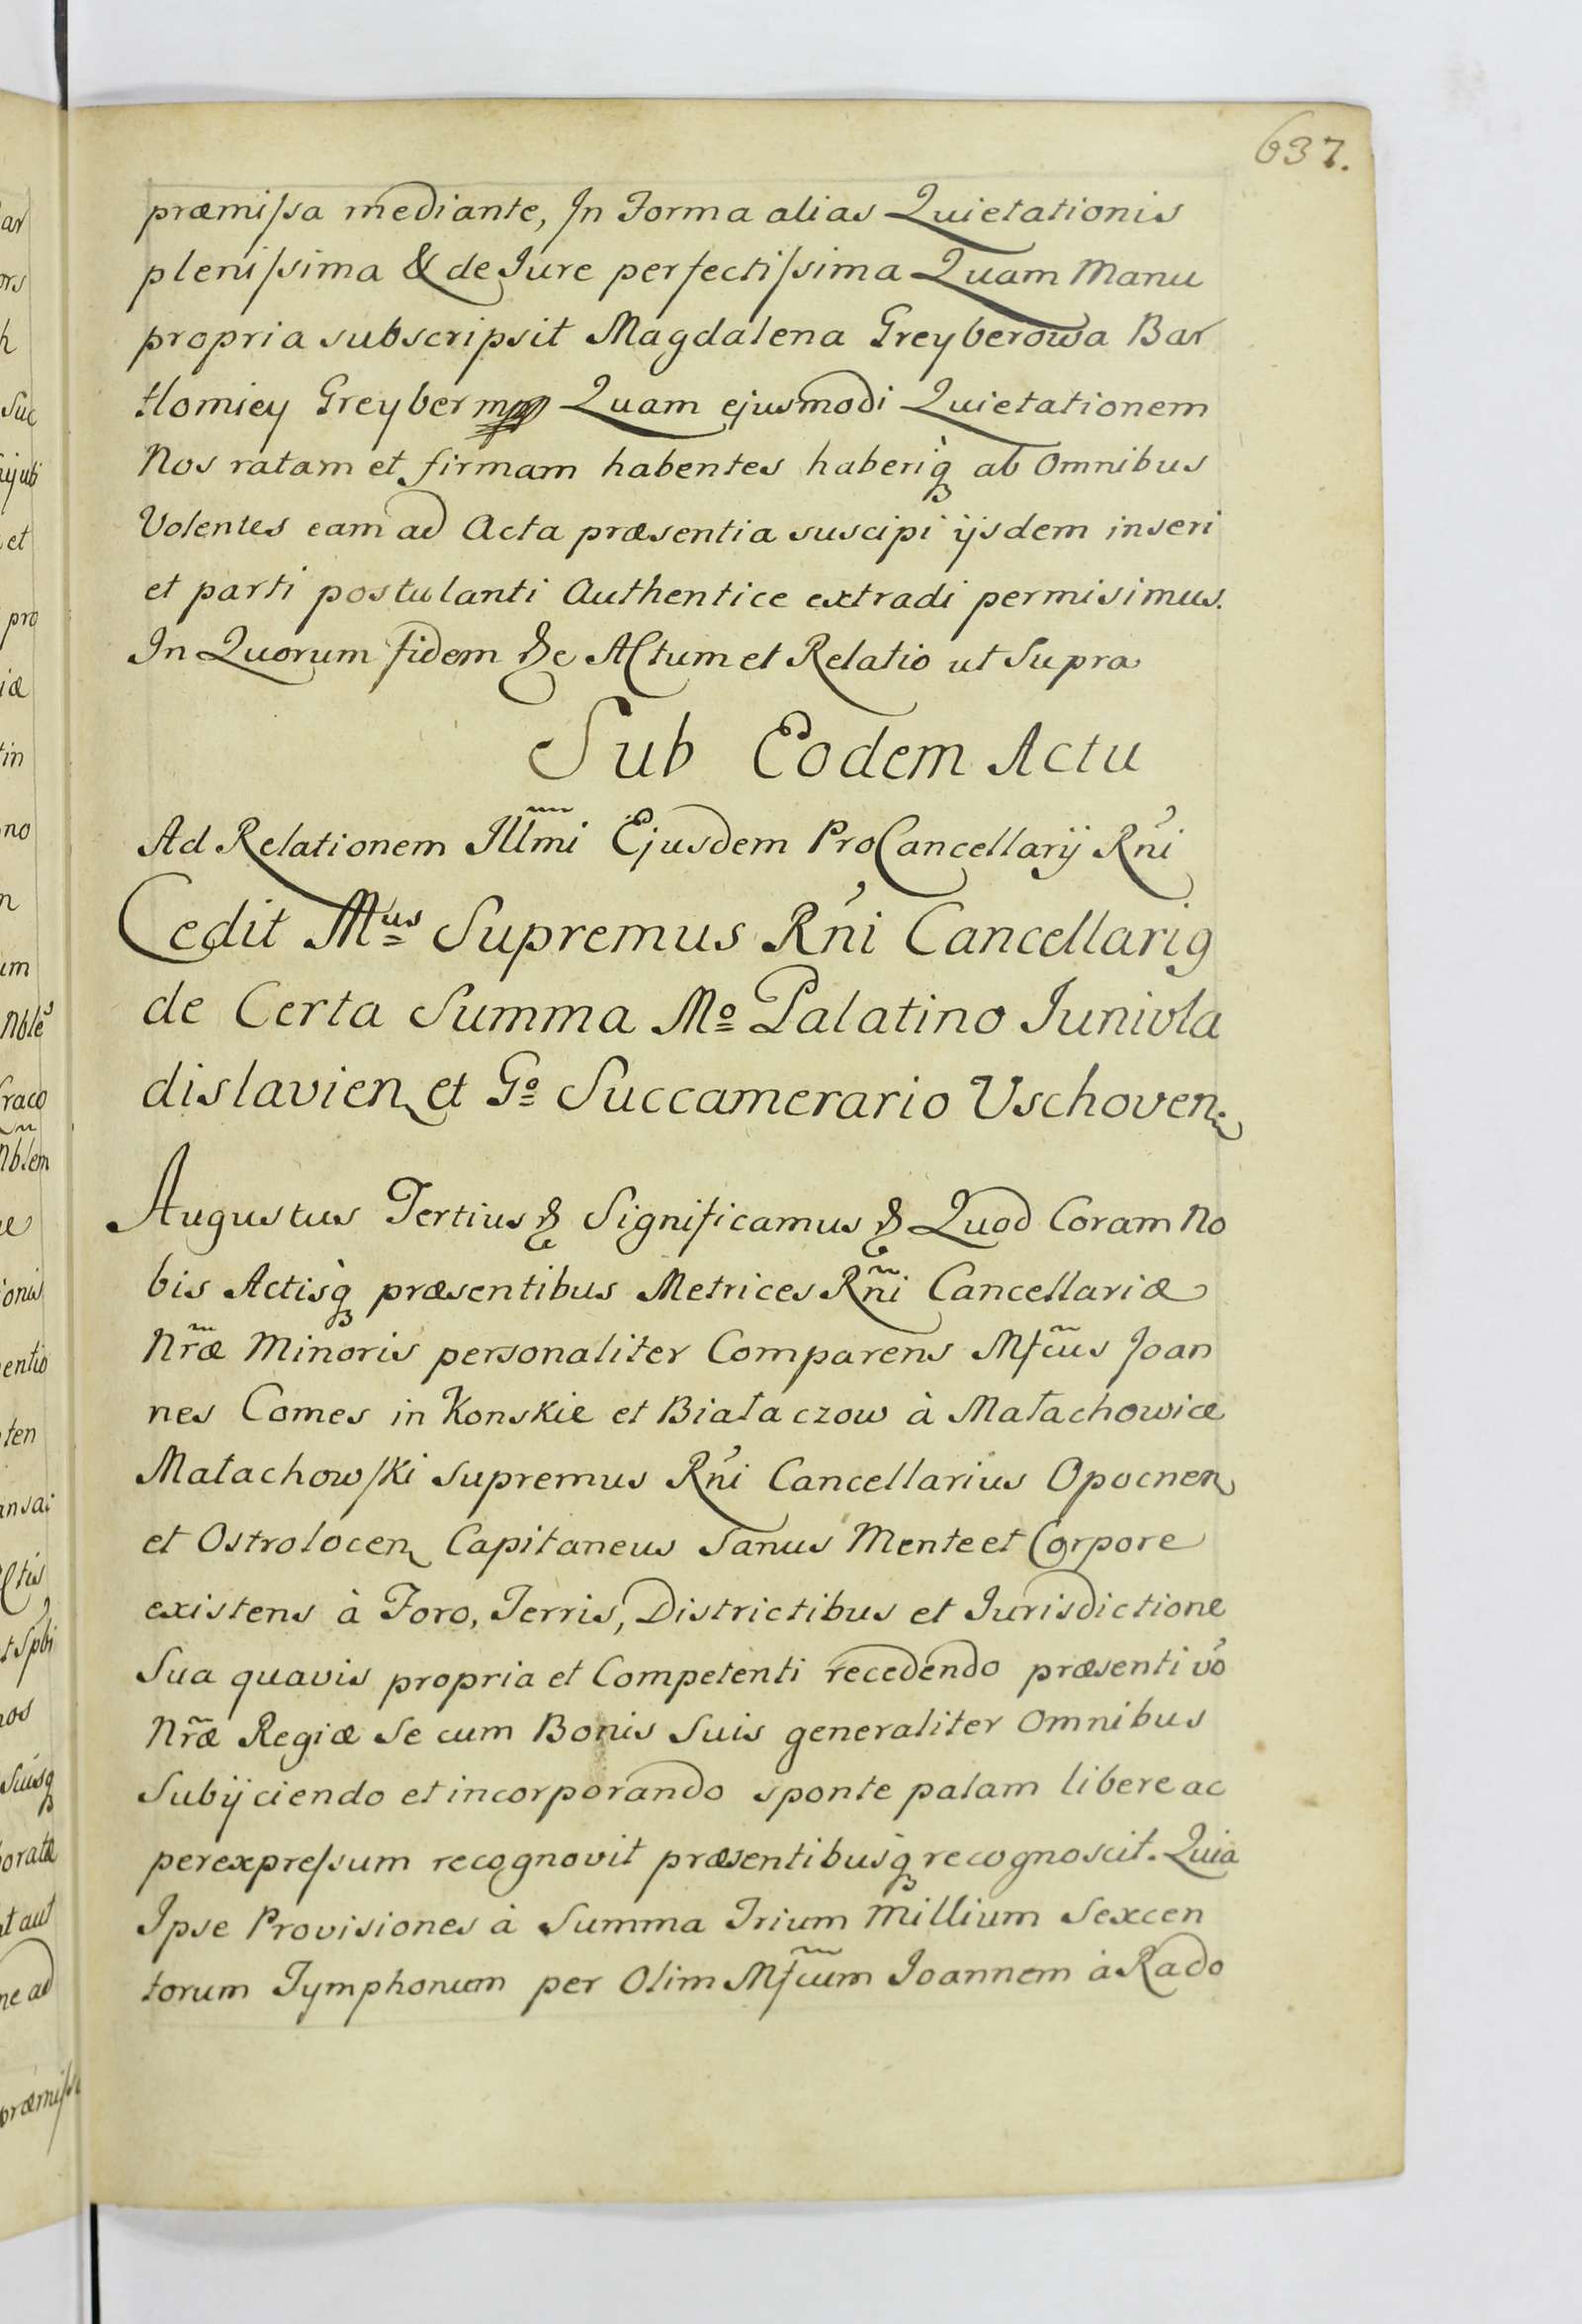 637.
præmiſsa mediante, In Forma alias Quietationis
pleniſsima & de Jure perfectiſsima Quam Manu
propria subscripsit Magdalena Greyberowa Bar
tłomiey Greyber mpp Quam ejusmodi Quietationem
Nos ratam et firmam habentes haberiq̀ ab Omnibus
Volentes eam ad Acta præsentia suscipi ijsdem inseri
et parti postulanti Authentice extradi permisimus.
In Quorum fidem &c Actum et Relatio ut Supra
Sub Eodem Actu
Ad Relationem Illm̃i Ejusdem ProCancellarij Rn̉i
Cedit Mus Supremus Rn̉i Cancellari9
de Certa Summa Mo Palatino Junivla
dislavien et Go Succamerario Vschoven.
Augustus Tertius & Significamus & Quod Coram No
bis Actisq̀ præsentibus Metrices Rñi Cancellariæ
Nr̃æ Minoris personaliter Comparens Mfc̃us Joan
nes Comes in Konskie et Białaczow à Małachowice
Małachowſki Supremus Rn̉i Cancellarius Opocnen
et Ostrolocen Capitaneus Sanus Mente et Corpore
existens à Foro, Terris, Districtibus et Jurisdictione
Sua quavis propria et Competenti recedendo præsenti vo̓
Nr̃æ Regiæ Se cum Bonis Suis generaliter Omnibus
Subijciendo et incorporando sponte palam libere ac
perexpreſsum recognovit præsentibusq̀ recognoscit. Quia
Ipse Provisiones à Summa Trium Millium Sexcen
torum Tymphonum per Olim Mfc̃um Joannem à Rado